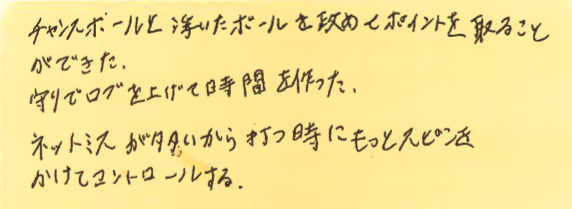 チャンスボールと浮いたボールを攻めてポイントを取ること
ができた.
守りでロブを上げて時間を作った.
ネットミスが多いから打つ時にもっとスピンを
かけてコントロールする.